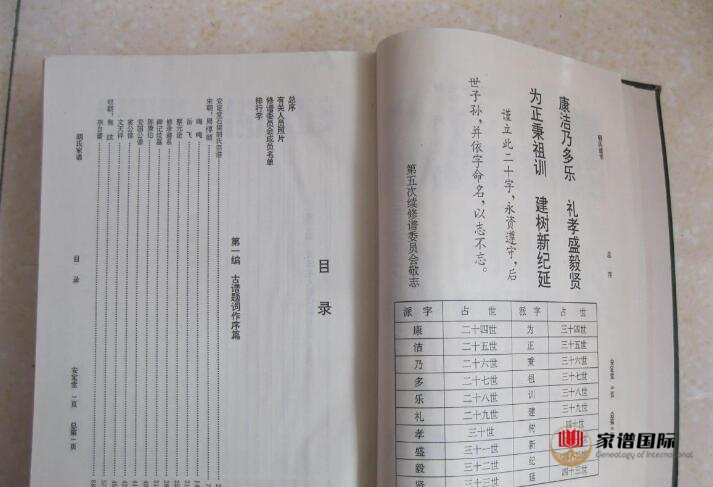 康洁乃多乐 礼孝盛毅贤
为正秉祖训 建树新纪延
谨立此二十字，永资遵守，后
世子孙，并依字命名，以志不忘。
第五次续修谱委员会敬志
派字 占世 派字 占世
康 二十四世 为 三十四世
洁 二十五世 正 三十五世
乃 二十六世 秉 三十六世
多 二十七世 祖 三十七世
乐 二十八世 训 三十八世
礼 二十九世 建 三十九世
孝 三十世 树
盛 三十一世 新
毅 三十二世 纪
贤 三十三世 延 四十三世
总序
安定堂
目录
总序
有关人员照片
修谱委员会成员名单
排行字
第一编 古谱题词作序篇
安定堂石梁胡氏宗谱
岳飞
蔡元定
安国公德
文天祥
胡氏家谱
目录
安定堂 一页 总第一页
家谱国际
Genealogy of International